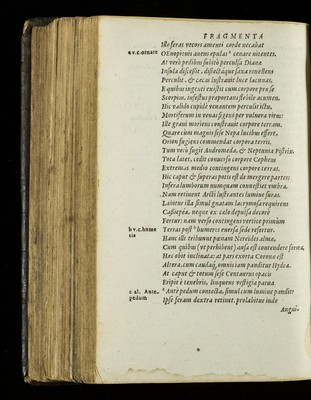 FRAGMENTA
Ille feras vecors amenti corde necabat
a v.c. ornare OEnopionis auens epulas a cenare nitentes.
At verò pedibus subitò perculsa Dianæ
Insula discessit, disiectáque saxa reuellens
Perculit, & cæcas lustrauit luce lacunas.
E quibus ingenti existit cum corpore præ se
Scorpios, infestus proportans flebile acumen.
Hic valido cupidè venantem perculit ictu,
Mortiferum in venas figens per vulnera virus:
Ille graui moriens constrauit corpore terram.
Quare cùm magnis sese Nepa lucibus effert,
Orion fugiens commendat corpora terris.
Tum verò fugit Andromeda, & Neptunia Pistrix
Tota latet, cedit conuerso corpore Cepheus
Extremas medio contingens corpore terras.
Hic caput & superas potis est demergere partes:
Infera lumborum numquam conuestiet vmbra.
Nam retinent Arcti lustrantes lumine suras.
Labitur illa simul gnatam lacrymosa requirens
Cassiepea, neque ex cælo depulsa decorè
Fertur: nam verso contingens vertice primùm
b v.c. hume Terras post b humeros euersa sede refertur.
ris Hanc illi tribuunt pœnam Nereides almæ,
Cum quibus (vt perhibent) ausa est contendere forma.
Hæc obit inclinata: at pars exorta Corona est
Altera, cum caudáq; omnis iam panditur Hydra.
At caput & totum sese Centaurus opacis
Eripit è tenebris, linquens vestigia parua
c al. Ante- c Antè pedum contecta, simul cum lumine pandit
pedum Ipse feram dextra retinet. prolabitur inde
Angui-